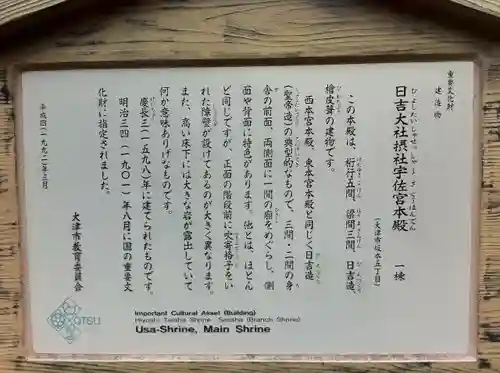 重要文化財
建造物
日吉大社摂社宇佐宮本殿　一棟
ひよしたいしゃせっしゃうさぐうほんでん
(大津市坂本五丁目)
この本殿は、桁行五間、梁間三間、日吉造、
檜皮葺の建物です。
西本宮本殿、東本宮本殿と同じく日吉造
(聖帝造)の典型的なもので、三間・二間の身
舎の前面、両側面に一間の廂をめぐらし、側
面や背面に特色があります。他とは、ほとん
ど同じですが、正面の階段前に吹寄格子をい
れた障壁が設けてあるのが大きく異なります。
また、高い床下には大きな岩が露出していて
何か意味ありげなものです。
慶長三(一五九八)年に建てられたものです。
明治三四(一九〇一)年八月に国の重要文
化財に指定されました。
平成四(一九九二)年三月
大津市教育委員会
OTSU
Important Cultural Asset (Building)
Hiyoshi Taisha Shrine, Sessha (Branch Shrine)
Usa-Shrine, Main Shrine